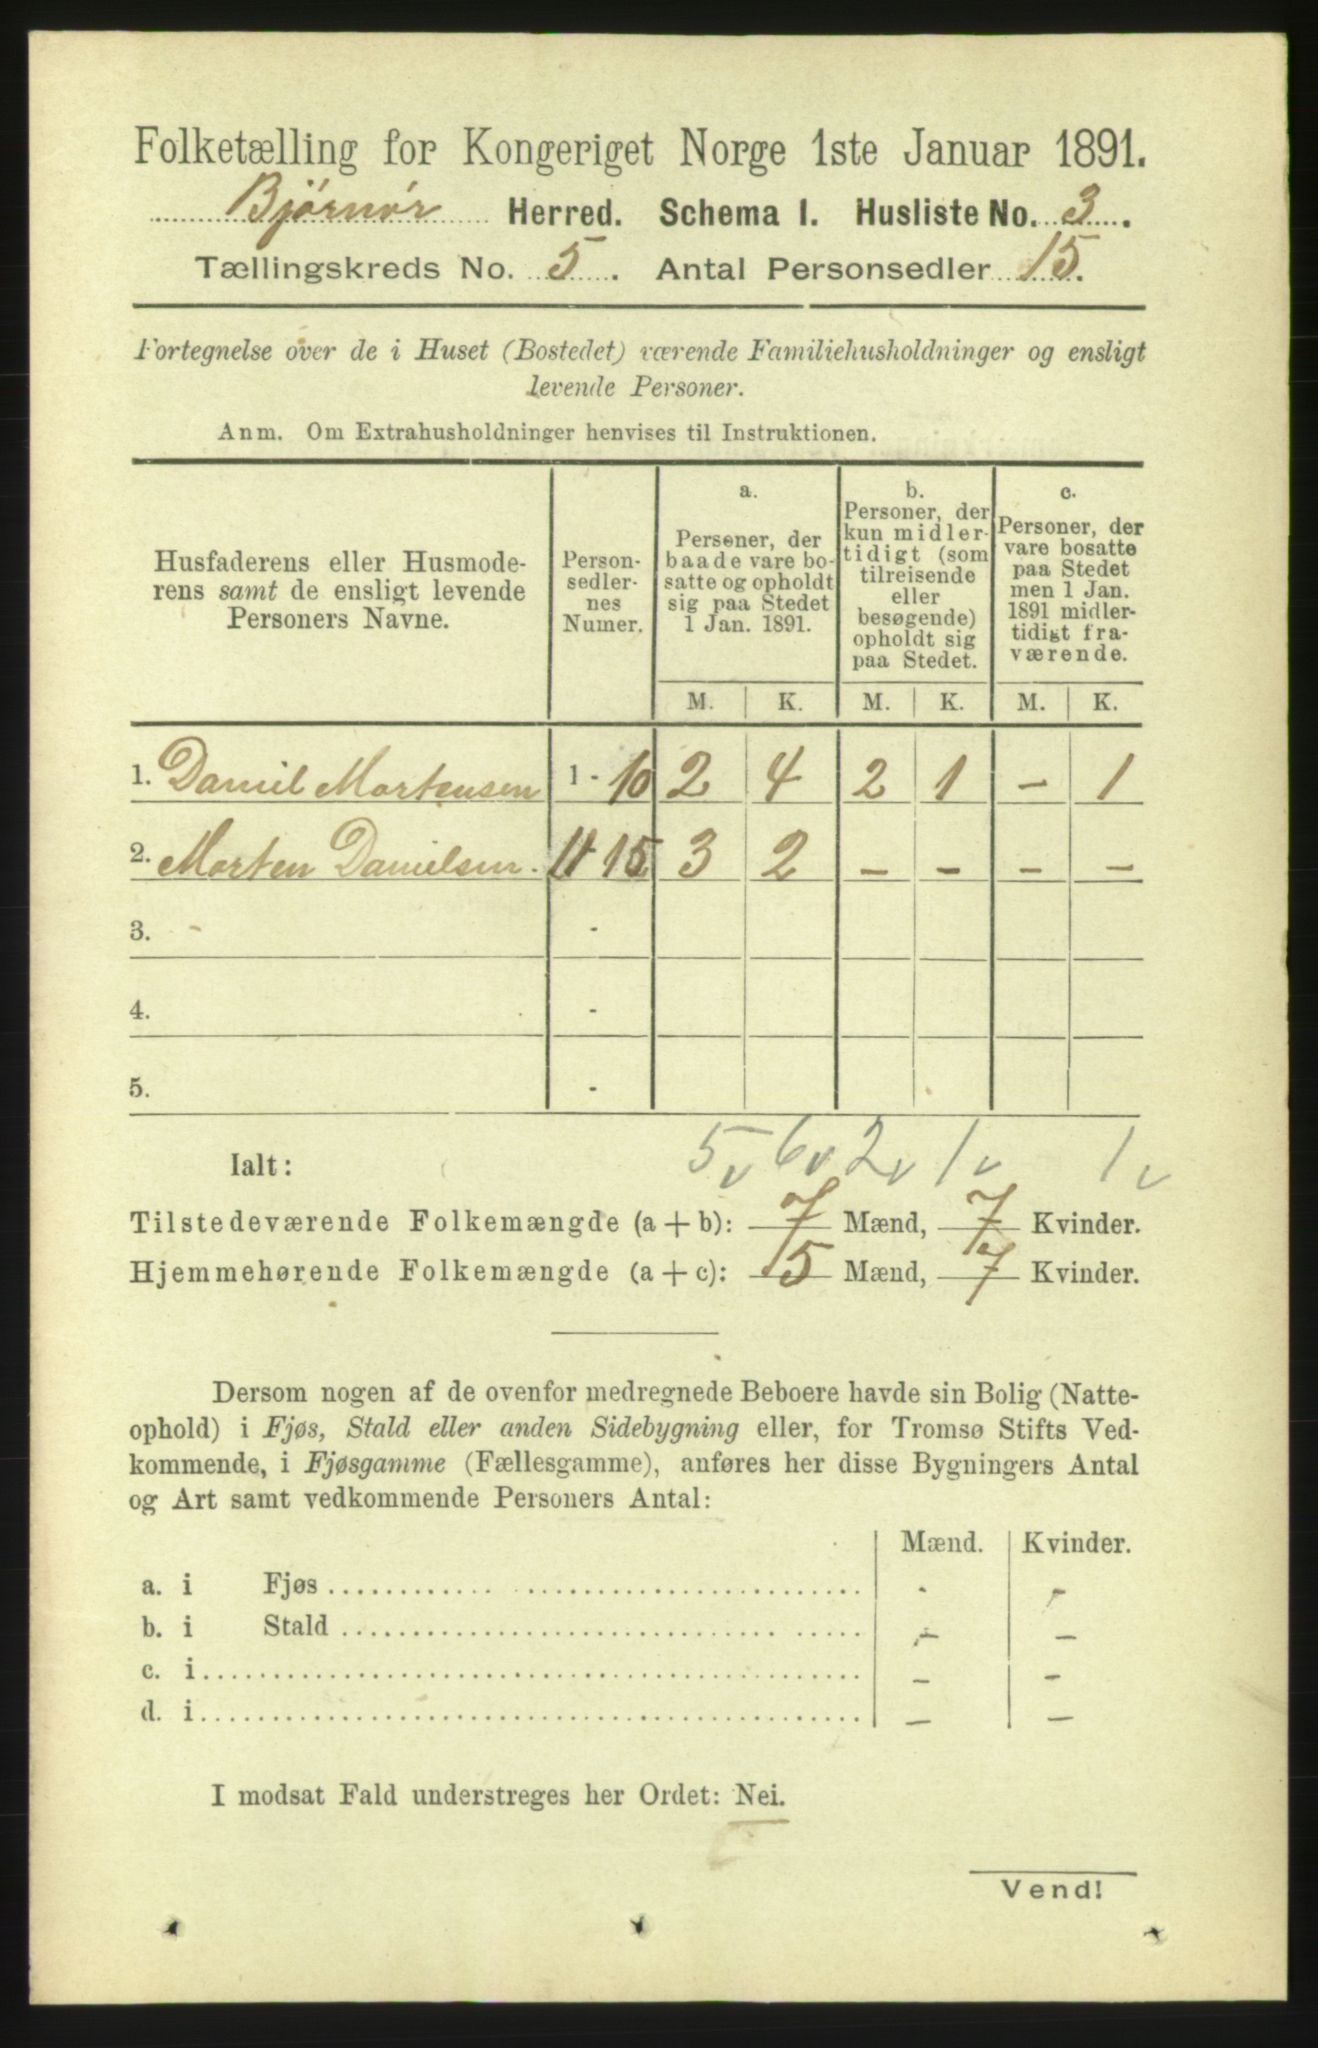 Folketælling for Kongeriget Norge 1ste Januar 1891.
Bjørnør Herred. Schema I. Husliste No. 3.
Tællingskreds No. 5. Antal Personsedler 15.
Fortegnelse over de i Huset (Bostedet) værende Familiehusholdninger og ensligt
levende Personer.
Anm. Om Extrahusholdninger henvises til Instruktionen.
Husfaderens eller Husmode-
rens samt de ensligt levende
Personers Navne.
Person-
sedler-
nes
Numer.
a.
Personer, der
baade vare bo-
satte og opholdt
sig paa Stedet
1 Jan. 1891.
b.
Personer, der
kun midler-
tidigt (som
tilreisende
eller
besøgende)
opholdt sig
paa Stedet.
c.
Personer, der
vare bosatte
paa Stedet
men 1 Jan.
1891 midler-
tidigt fra-
værende.
M. K. M. K. M. K.
1. Daniel Mortensen 1 - 10 2 4 2 1 - 1
2. Morten Danielsen. 11 15 3 2 - - - -
3. -
4. -
5. -
Ialt: 5 v 6 v 2 v 1 v 1 v
Tilstedeværende Folkemængde (a + b): 7 Mænd, 7 Kvinder.
Hjemmehørende Folkemængde (a + c): 5 Mænd, 7 Kvinder.
Dersom nogen af de ovenfor medregnede Beboere havde sin Bolig (Natte-
ophold) i Fjøs, Stald eller anden Sidebygning eller, for Tromsø Stifts Ved-
kommende, i Fjøsgamme (Fællesgamme), anføres her disse Bygningers Antal
og Art samt vedkommende Personers Antal:
Mænd. Kvinder.
a. i Fjøs - -
b. i Stald - -
c. i - -
d. i - -
I modsat Fald understreges her Ordet: Nei.
Vend!